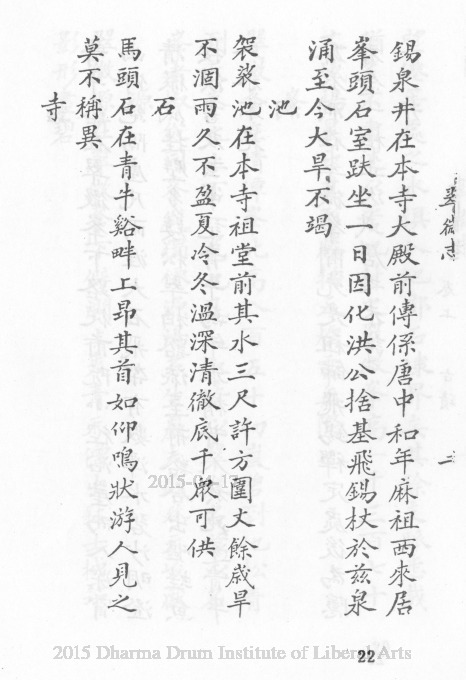 翠微志
二
錫泉井在本寺大殿前傳係唐中和年麻祖西來居
峯頭石室趺坐一日因化洪公捨基飛錫杖於茲泉
涌至今大旱不竭
池
袈裟池在本寺祖堂前其水三尺許方圍丈餘歲旱
不涸雨久不盈夏冷冬溫深清徹底千眾可供
石
馬頭石在青牛谿畔上昂其首如仰鳴狀游人見之
莫不稱異
寺
2015-01-15
22
2015 Dharma Drum Institute of Liberal Arts